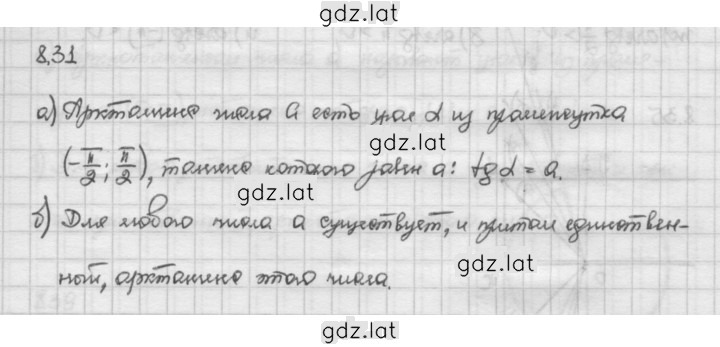 gdz.lat
8.31
а) Арктангенс числа a есть угол α из промежутка
gdz.lat
(-π/2; π/2), тангенс которого равен a: tg α = a.
gdz.lat
б) Для любого числа a существует, и притом единствен-
gdz.lat
ный, арктангенс этого числа.
gdz.lat